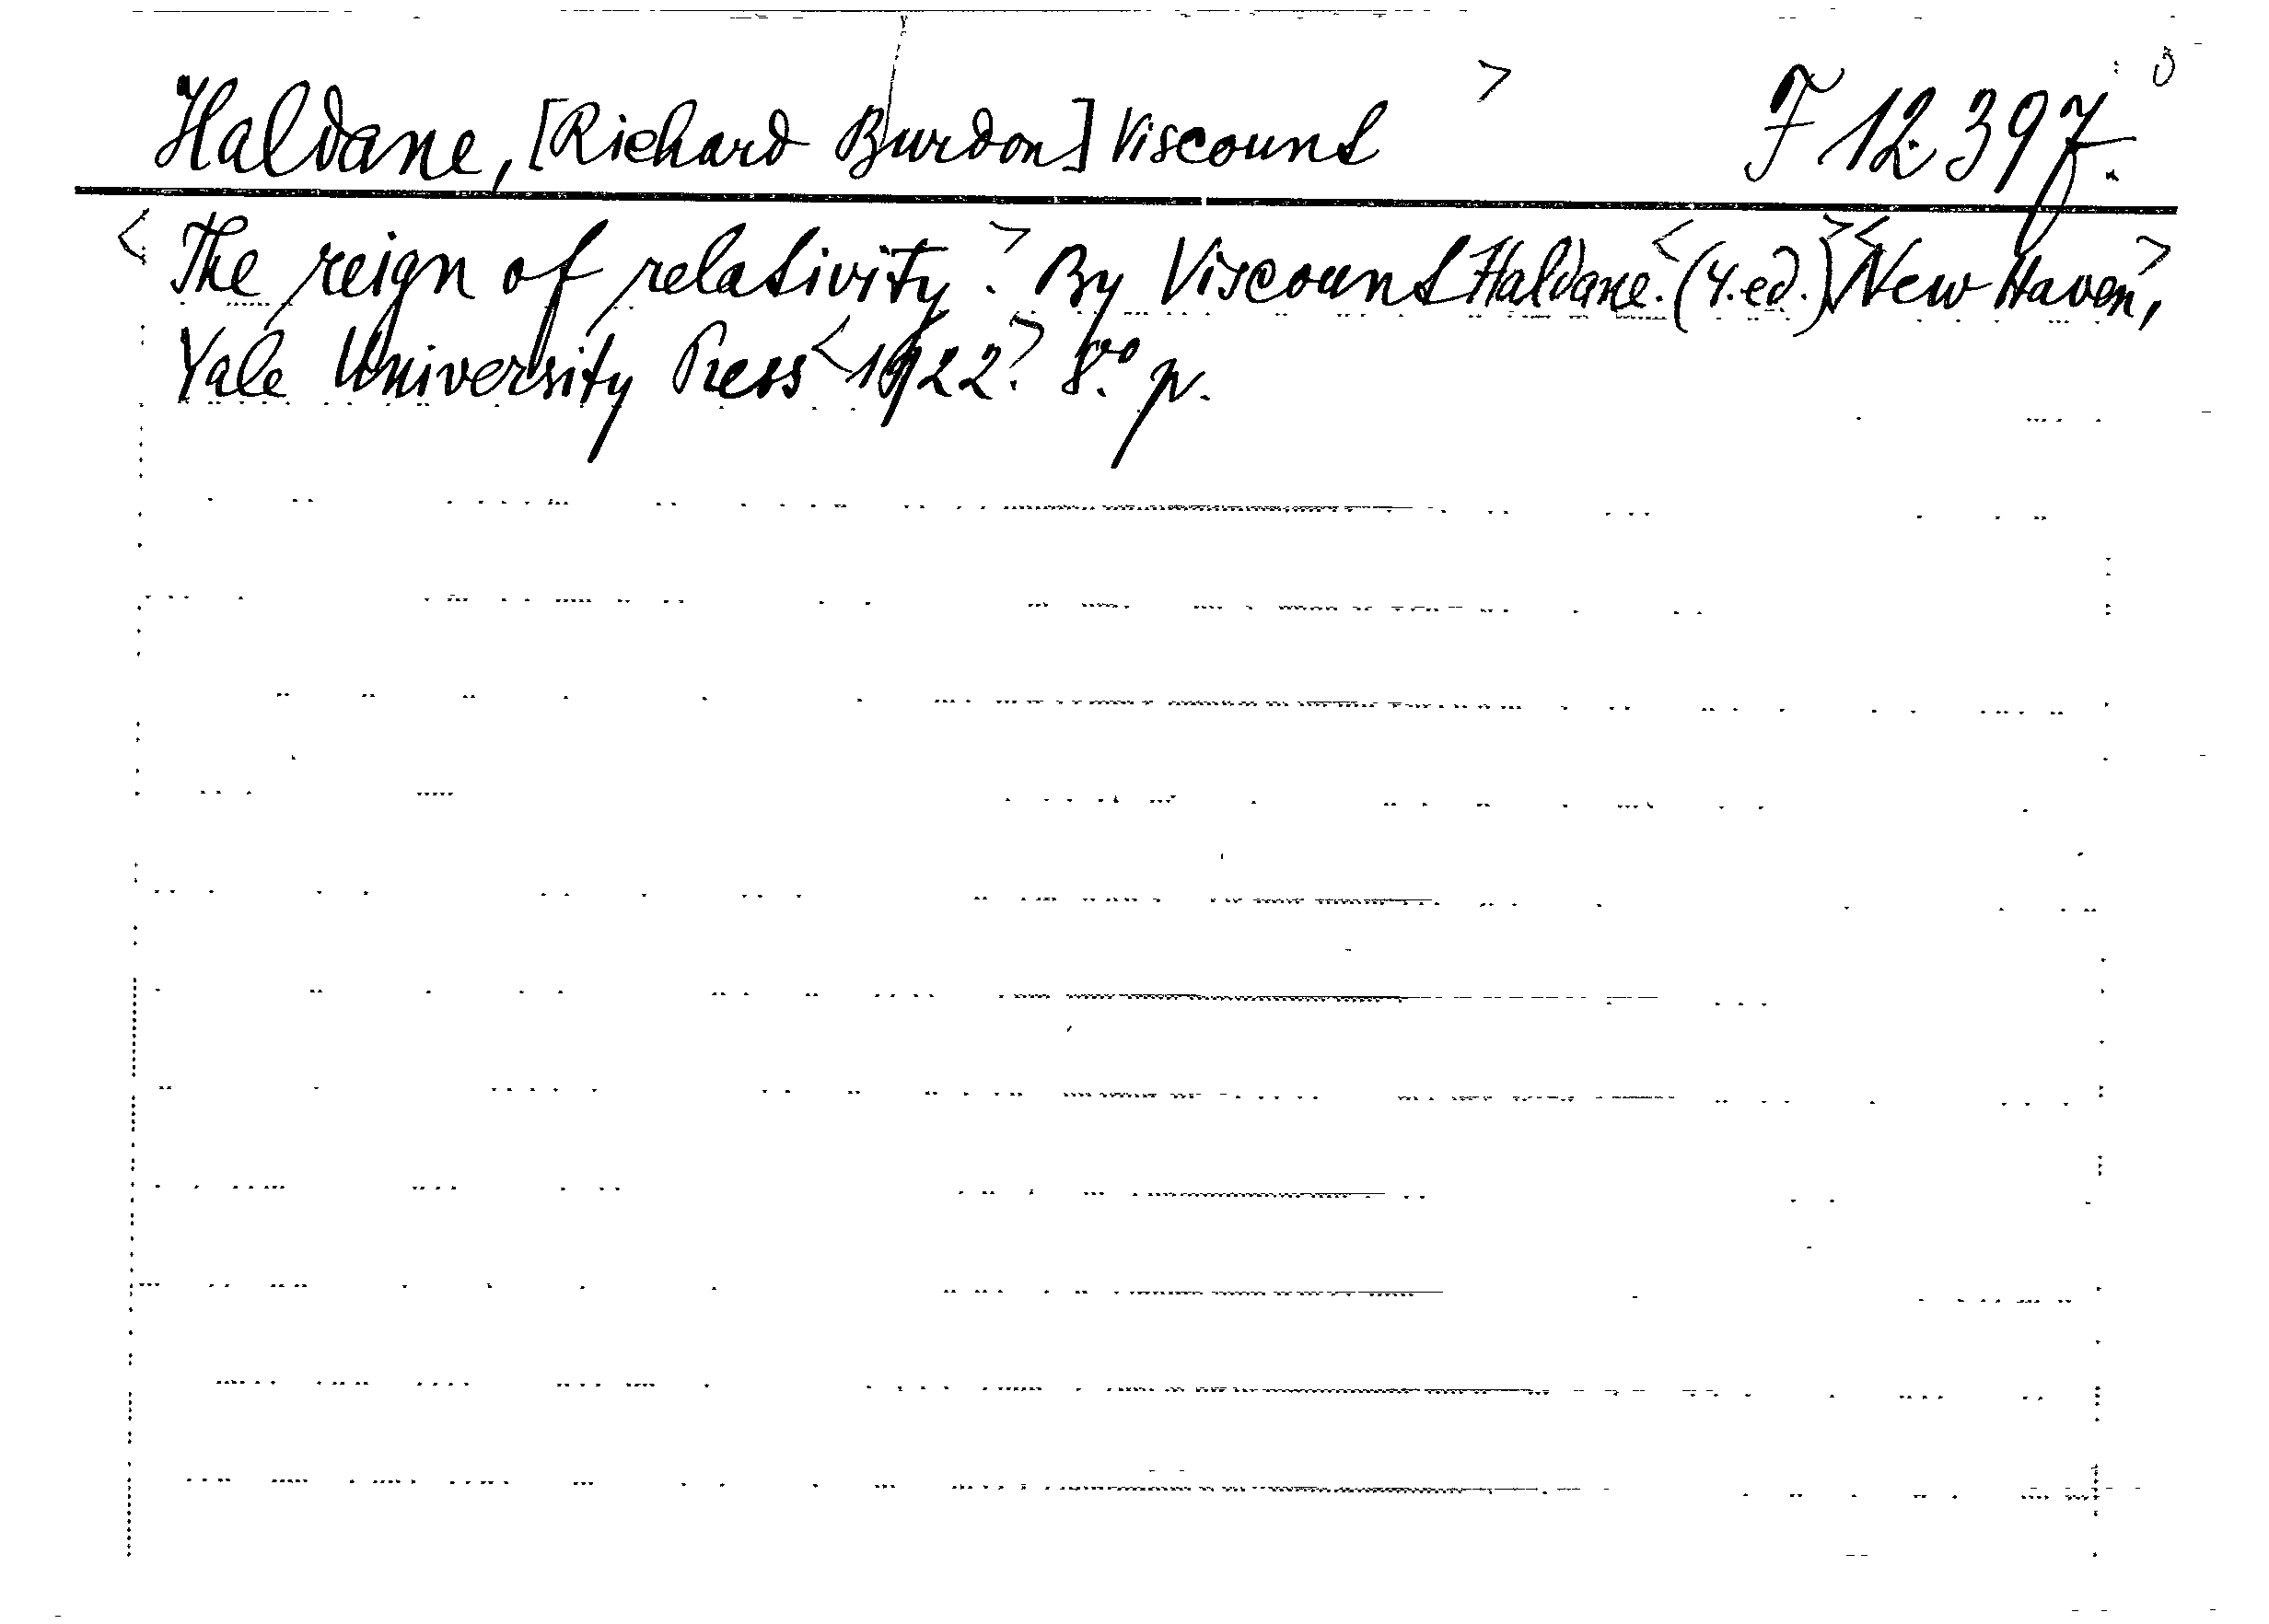 Haldane, [Richard Burdon] Viscount > F 12.397.
< The reign of relativity.> By Viscount Haldane.<(4.ed.)><New Haven>,
Yale University Press <1922.> 8.° p.